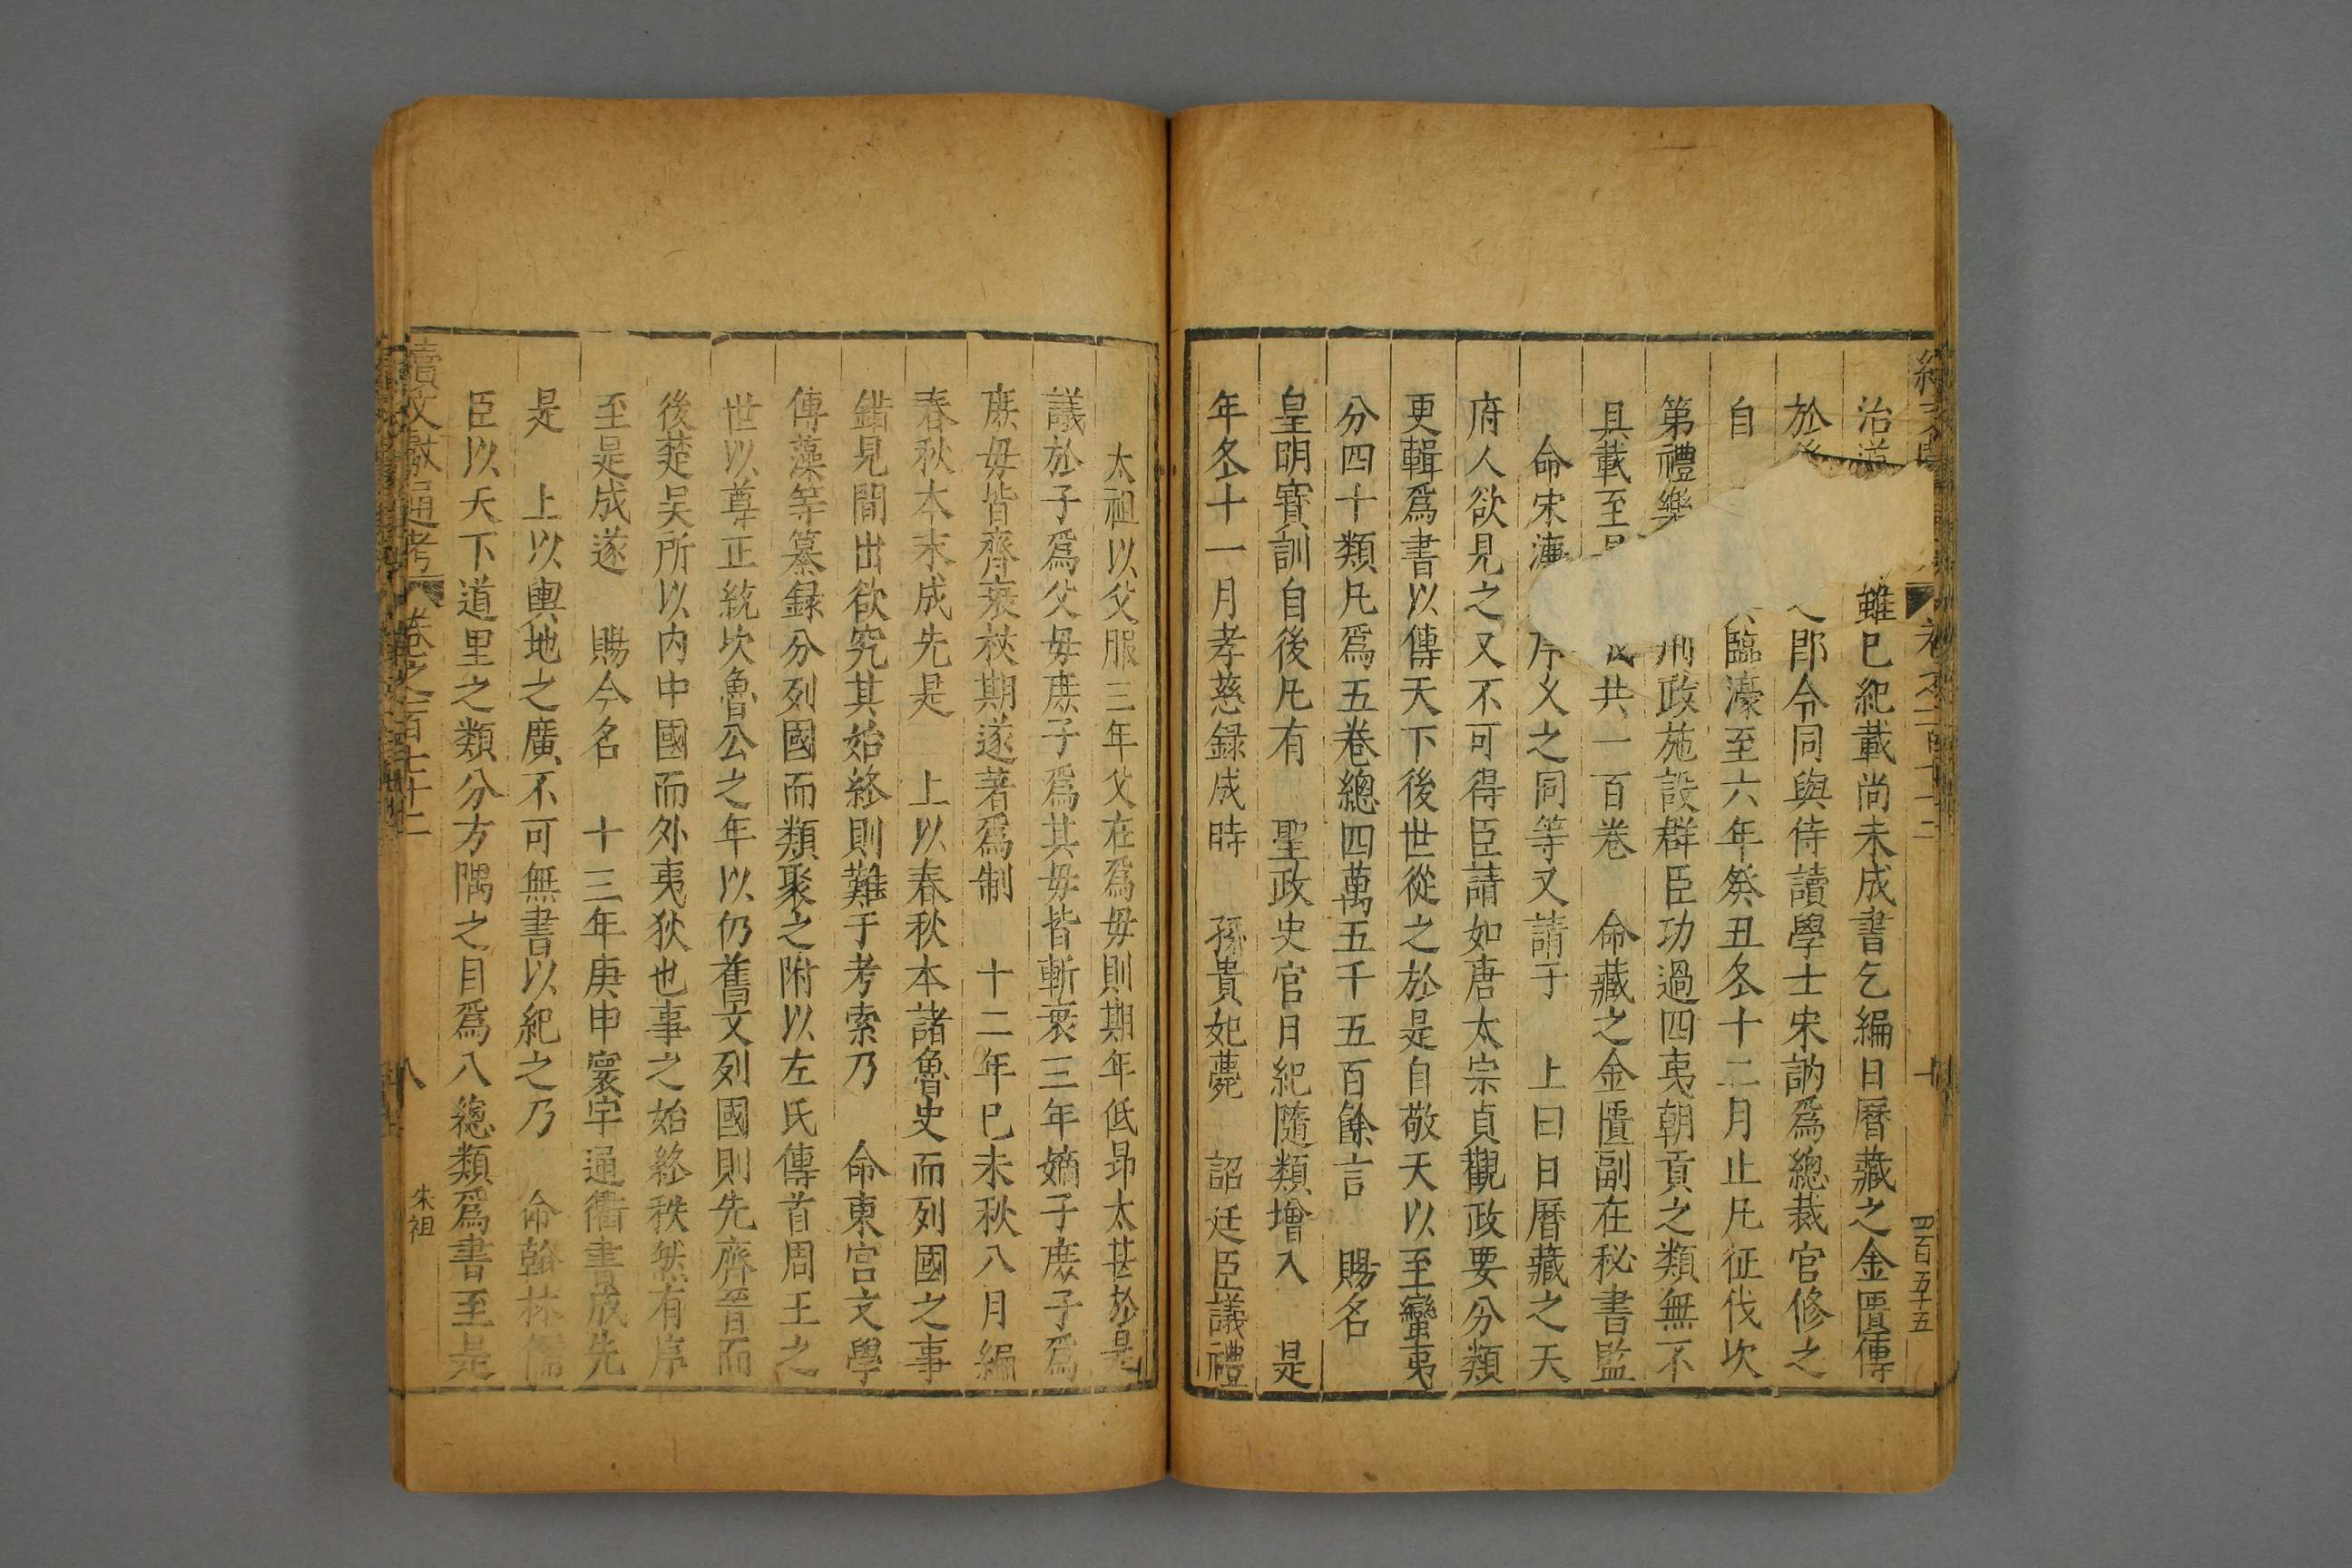 治道雖已紀載尚未成書乞編日曆藏之金匱傳
於即令同與侍讀學士宋訥爲總裁官修之
自臨濠至六年癸丑冬十二月止凡征伐次
第禮樂刑政施設群臣功過四夷朝貢之類無不
具載至共一百卷　命藏之金匱副在秘書監
命宋濂序文之同等又請于　上曰日曆藏之天
府人欲見之又不可得臣請如唐太宗貞觀政要分類
更輯爲書以傳天下後世從之於是自敬天以至蠻夷
分四十類凡爲五卷總四萬五千五百餘言　賜名
皇明寶訓自後凡有　聖政史官日紀隨類增入　是
年冬十一月孝慈録成時　孫貴妃薨　詔廷臣議禮
四百五十五
太祖以父服三年父在爲毋則期年低昻太甚於是
議於子爲父毋庶子爲其毋皆斬衰三年嫡子庶子爲
庶毋皆齊衰杖期遂著爲制　十二年已未秋八月編
春秋本末成先是　上以春秋本諸魯史而列國之事
錯見間出欲究其始終則難于考索乃　命東宮文學
傳藻等纂録分列國而類聚之附以左氏傳首周王之
世以尊正統次魯公之年以仍舊文列國則先齊晉而
後楚吴所以内中國而外夷狄也事之始終秩然有序
至是成遂　賜今名　十三年庚申寰宇通衢書成先
是　上以輿地之廣不可無書以紀之乃　命翰林儒
臣以天下道里之類分方隅之目爲八總類爲書至是
續文獻通考　卷之一百七十二　八　朱祖